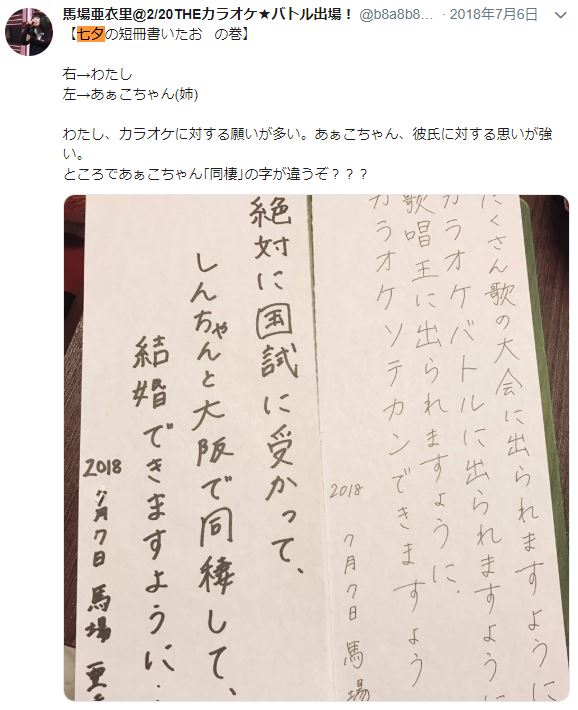 馬場亜衣里@2/20THEカラオケ★バトル出場！ @b8a8b8... · 2018年7月6日
【七夕の短冊書いたお　の巻】
右→わたし
左→あぁこちゃん(姉)
わたし、カラオケに対する願いが多い。あぁこちゃん、彼氏に対する思いが強
い。
ところであぁこちゃん｢同棲｣の字が違うぞ？？？
たくさん歌の大会に出られますように
カラオケバトルに出られますように
歌唱王に出られますように.
カラオケソテカンできますよう
2018 7月7日 馬場
絶対に国試に受かって、
しんちゃんと大阪で同して、
結婚できますように..
2018 7月7日 馬場 亜